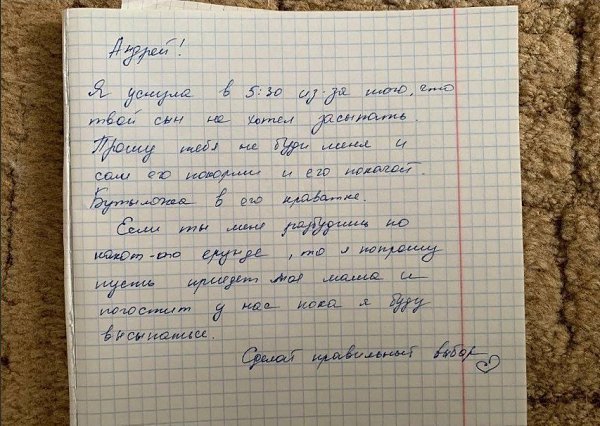 Андрей!
Я уснула в 5:30 из-за того, что
твой сын не хотел засыпать.
Прошу тебя не буди меня и
сам его покорми и его покачай.
Бутылочка в его кроватке.
Если ты меня разбудишь по
какой-то ерунде, то я попрошу
пусть приедет моя мама и
погостит у нас пока я буду
высыпаться.
Сделай правильный выбор